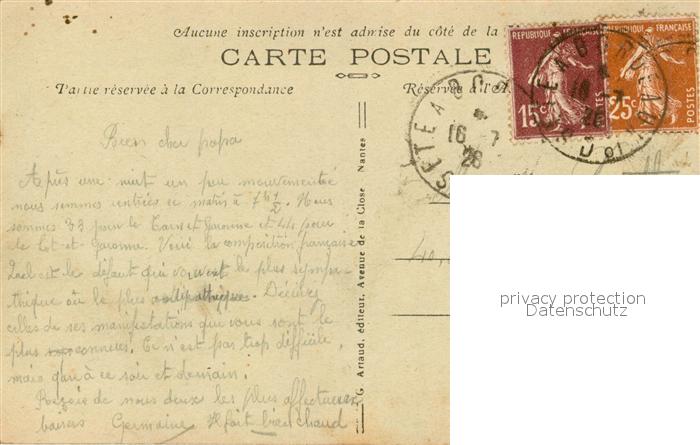 Aucune inscription n'est admise du côté de la
CARTE POSTALE
Partie réservée à la Correspondance
Réservée à l'A
REPUBLIQUE FRANÇAISE
15c
POSTES
REPUBLIQUE FRANÇAISE
25c
POSTES
16-7
28
16-7
28
Bien cher papa
Après une nuit un peu mouvementée
nous sommes rentrées ce matin à 7h 1/2. Nous
sommes 33 pour le Tarn et Garonne et 44 pour
le Lot-et-Garonne. Voici la composition française
Quel est le défaut qui vous est le plus sympa-
thique ou le plus antipathique. Décrivez
celles de ses manifestations que vous sont le
plus connues. Ce n'est pas trop difficile,
mais gare à ce soir et demain.
Reçois de nous deux les plus affectueux
baisers Germaine Il fait bien chaud
G. Artaud, éditeur, Avenue de la Close Nantes
40,
privacy protection
Datenschutz